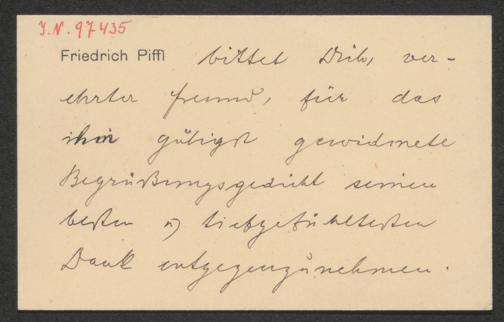 I.N. 97435
Friedrich Piffl bittet Dich, ver-
ehrter Freund, für das
ihm gütigst gewidmete
Begrüßungsgedicht seinen
besten u. tiefgefühltesten
Dank entgegenzunehmen.